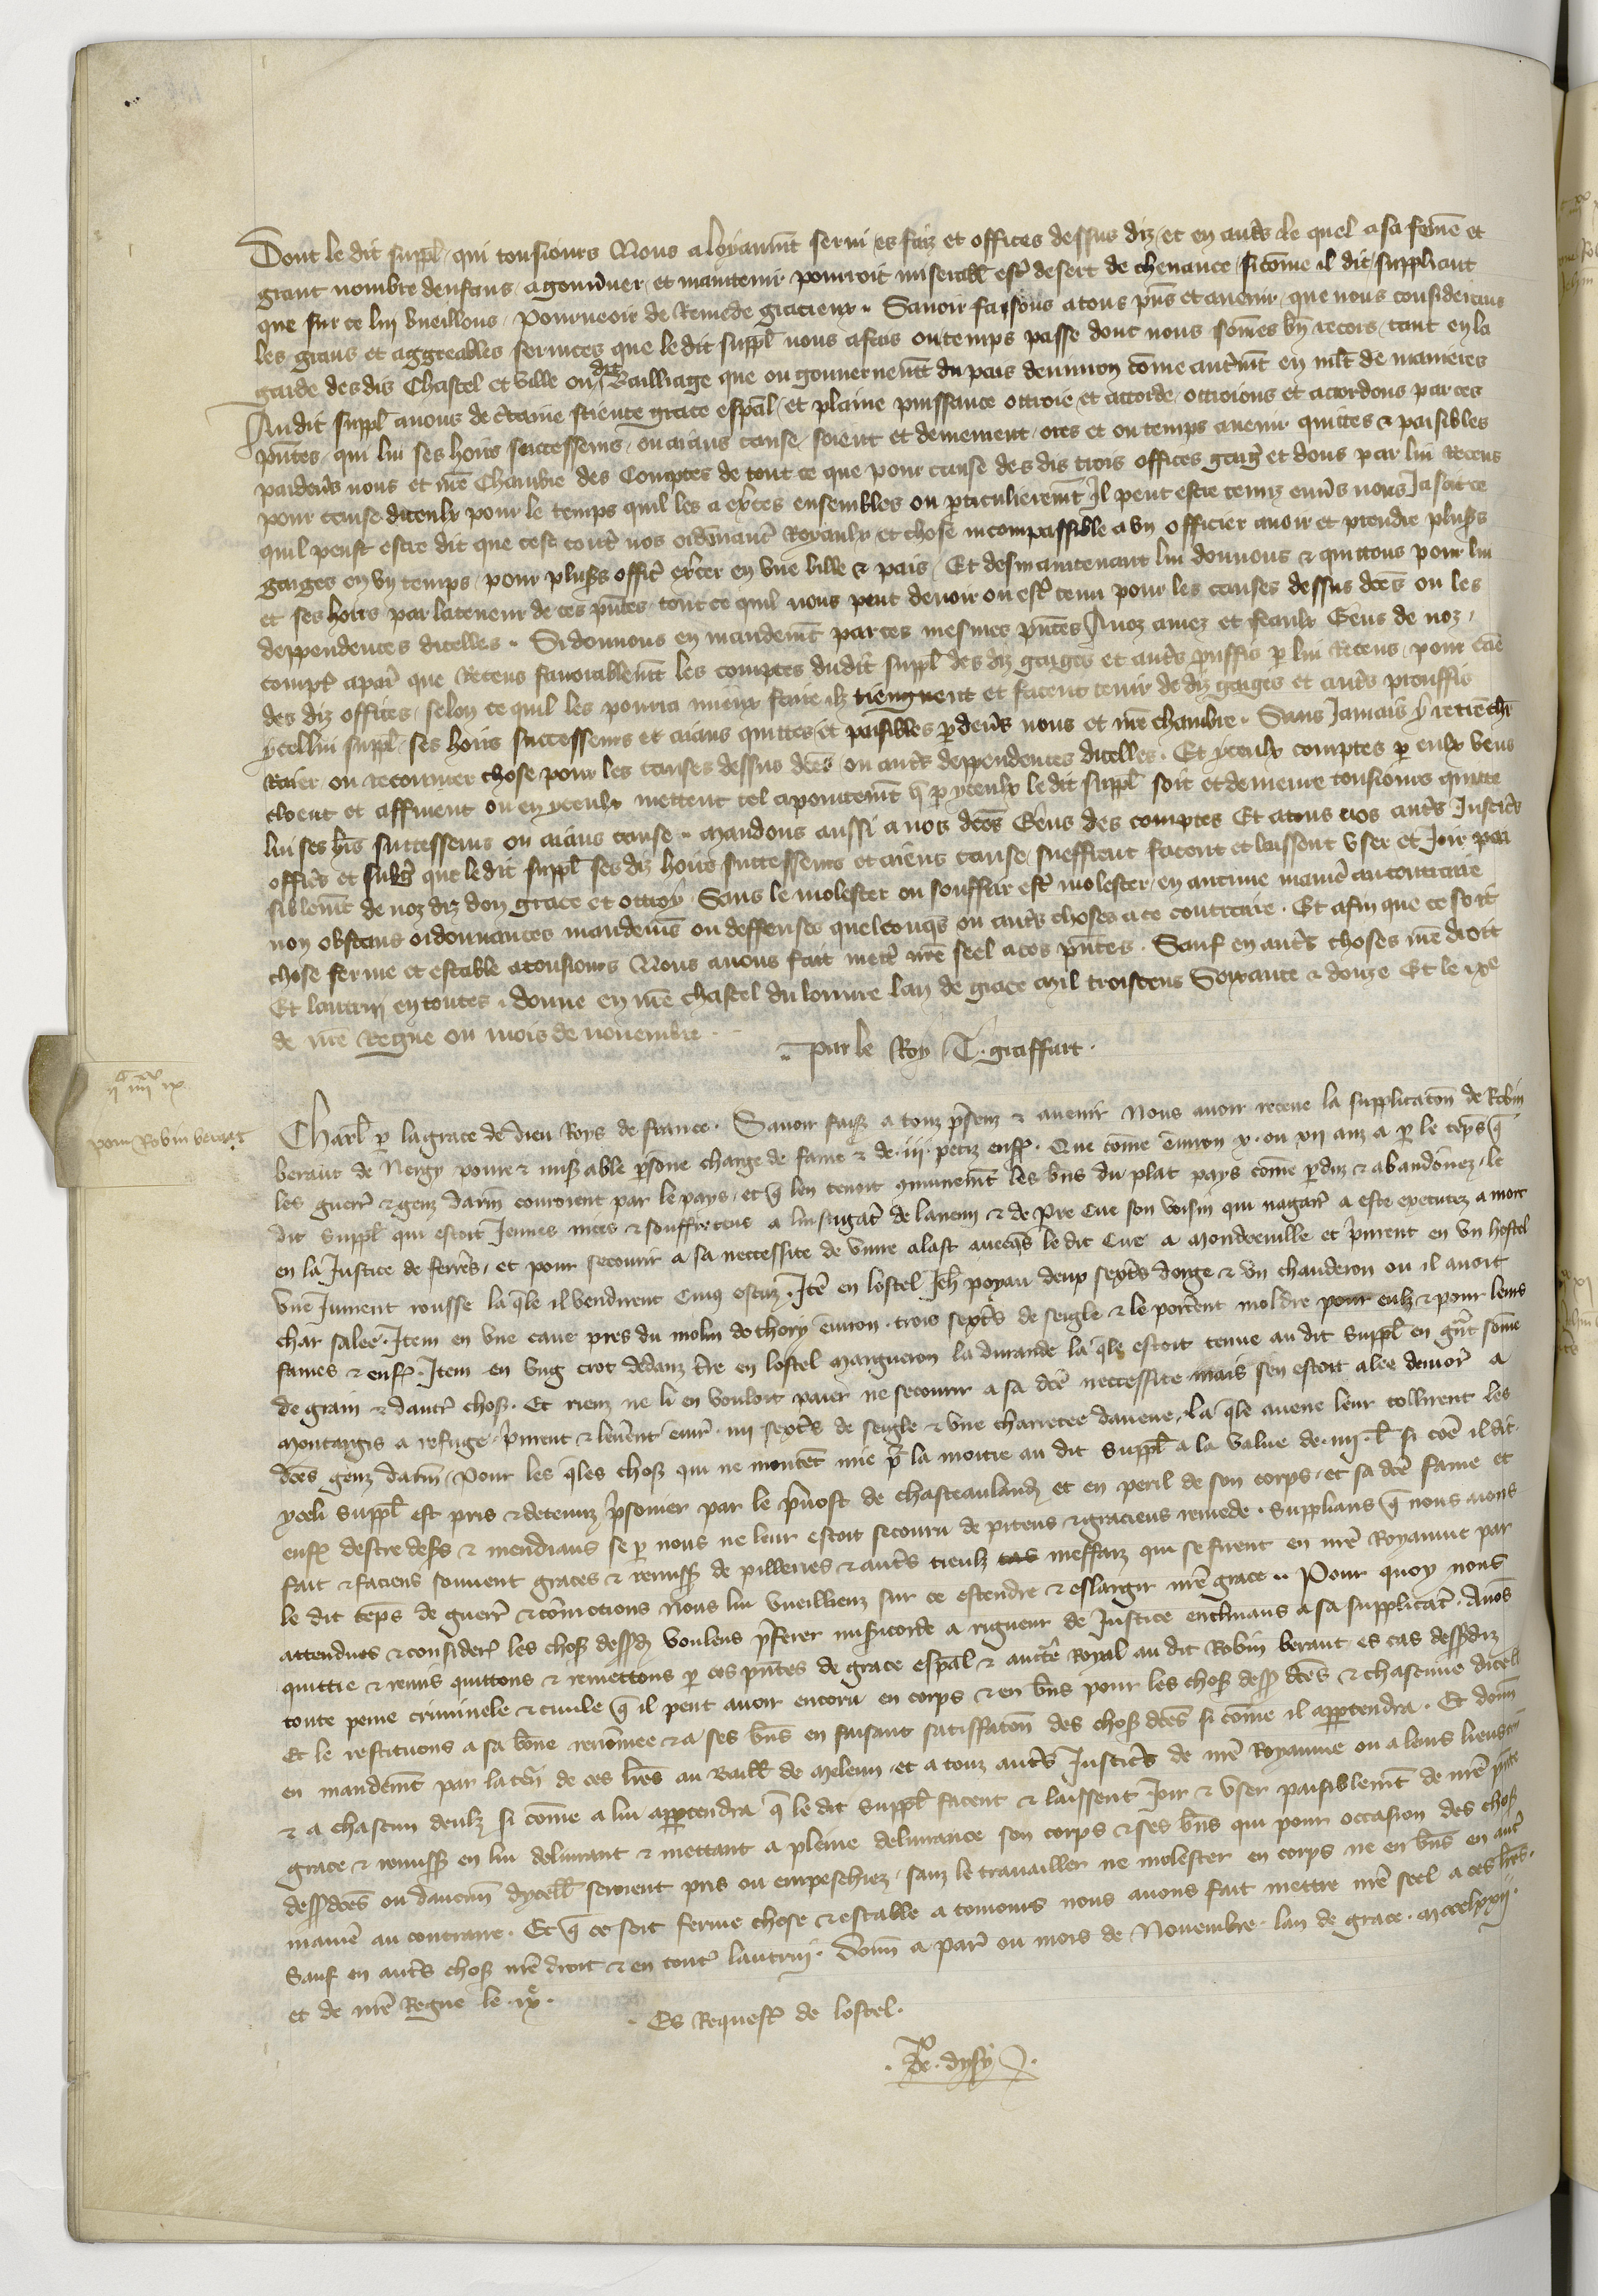 Dont le dit suppl̃ qui tousiours Nous a loyaumẽt serui es faiz et offices dessus diz et en autr̃s le quel a sa fem̃e et
grant nombre denfans a gouũner et maintenir pourroit miserabl̃ estr̃ desert de cheuance si com̃e il dit suppliant
que sur ce lui vueillons Pourueoir de Remede gracieux. Sauoir faisons a tous p̃ns et auenir que nous considerans
les grans et aggreables seruices que le dit suppl̃ nous a fais ou temps passe dont nous som̃es bñ recors tant en la
garde des dis Chastel et ville ou dit Bailliage que ou gouuernemẽt du pais denuiron com̃e autrem̃t en mlt̃ de manieres
Audit suppl̃ auons de c̃taine science grace esp̃al et plaine puissance ottroie et accorde ottroions et accordons par ces
p̃ntes que lui ses hoirs successeurs ou aians cause soient et demeurent ores et ou temps auenir quittes & paisibles
pardeũs nous et nr̃e Chambre des Comptes de tout ce que pour cause des dis trois offices gaig̃ et dons par lui Receus
pour cause diceulx pour le temps quil les a exerces ensembles ou p̱ticulierem̃t Il peut estre tenuz enũs nous Ja soit ce
quil peust estre dit que cest contr̃ nos ordenanc̃ Royaulx et chose incompassible a vn officier auoir et prendre pluss̃
gaiges en vn temps pour pluss̃ offic̃ exercer en vne ville & pais. Et des maintenant lui donnons & quittons pour lui
et ses hoirs par la teneur de ces p̃ntes tout ce quil nous peut deuoir ou estr̃ tenu pour les causes dessus dc̃es ou les
deppendences dicelles. Si donnons en mandem̃t par ces mesmes p̃ntes A noz amez et feaulx Gens de noz
compt̃ a par̃ que Receus fauorablem̃t les comptes dudit suppl̃ des diz gaiges et autr̃s prouffis p̱ lui Receus pour cãe
des diz offices selon ce quil les pourra mieux faire ilz tiengnent et facent tenir de diz gaiges et autr̃s prouffis
ycellui suppl̃ ses hoirs successeurs et aians quittes et paisibles p̱ deũs nous et nr̃e chambre. Sans Jamais y retrench̃
Raier ou recouurer chose pour les causes dessus dc̃es ou autr̃s deppendences dicelles. Et yceulx comptes p̱ eulx veus
cloent et affinent ou en yceulx mettent tel apointem̃t q̃ p̱ yceulx le dit suppl̃ soit et demeure tousiours quitte
lui ses hr̃s successeurs ou aians cause. Mandons aussi a nos dc̃es Gens des comptes Et a tous nos autr̃s Justic̃rs
offic̃rs et subg̃ que le dit suppl̃ ses diz hoirs successeurs et aiens cause sueffrent facent et laissent vser et Joir pai
siblem̃t de noz diz don grace et ottroy Sans le molester ou souffrir estr̃ molester en aucune manier̃ au contraire
non obstans ordonnances mandem̃s ou deffenses quelconq̃s ou autr̃s choses a ce contraire. Et afin que ce soit
chose ferme et estable a tousiours Nous auons fait mettr̃ nr̃e seel a ces p̃ntes. Sauf en autr̃s choses nr̃e droit
Et lautrui en toutes. donne en nr̃e chastel du louure lan de grace Mil troiscens Soixante & douze Et le ixe
de nr̃e Regne ou mois de nouembre.
Par le Roy T. graffart.
iic iiiixx ix
pour Robin beraut
Charl̃ p̱ la grace de dieu Roys de france. Sauoir faiss̃ a touz p̃sens & auenir Nous auoir receue la supplicatõn de Robin
beraut de Nergy poure & miserable p̱sõne charge de fame & de iii petiz enf̃. Que com̃e enuiron x. ou xii anz a p̱ le tẽps q̃
les guerr̃ & genz darm̃ couroient par le pays, et q̃ len tenoit com̃unem̃t les b̃ns du plat pays com̃e p̱duz & abandõnez, le
dit suppl̃ qui estoit Jeunes nices & souffreteus a linstigat̃ de lanemi & de p̃re Cue son voisin qui nagair̃ a este executez a mort
en la Justice de ferr̃s, et pour secourir a sa neccessite de viure alast auecq̃s le dit Cue a mondreuille et p̃nrent en vn hostel
vne Jument rousse la q̃le il vendirent cinq escuz. Itẽ en lostel Jeh̃ poyau deux sext̃rs dorge & vn chauderon ou il auoit
char salee. Item en vne caue pres du molin de thory enuiron trois sext̃rs de seigle & le port̃ent moldre pour eulz & pour leurs
fames & enf̃. Item en vng crot dedanz t̃re en lostel margueron la durande la q̃le estoit tenue au dit suppl̃ en g̃nt som̃e
de grain & dautr̃ chos̃. Et riens ne li en vouloit paier ne secourir a sa dc̃e neccessite mais sen estoit alee demor̃ a
montargis a refuge p̃nrent & leuer̃ent enuir̃. iiii sext̃rs de seigle & vne charretee dauene, la q̃le auene leur tollirent les
dc̃es genz darm̃. Pour les q̃les chos̃ qui ne montent mie p̱ la moitie au dit suppl̃ a la value de iiii. l̃ si cõe il dit.
yceli suppl̃ est pris & detenuz p̃sonier par le p̃uost de chasteaulandõ et en peril de son corps, et sa dc̃e fame et
enf̃ destre des̃s & mendians se p̱ nous ne leur estoit secouru de piteus & gracieus remede. Supplians q̃ nous aions
fait & faciens souuent graces & remiss̃ de pilleries & autr̃s tieulz cas meffaiz qui se firent en nr̃e Royaume par
le dit tẽps de guerr̃ & com̃ocions Nous lui vueilliens sur ce estendre & eslargir nr̃e grace. Pour quoy nous
attendues & consider̃ les chos̃ dess̃d̃ voulens p̃ferer mis̃icorde a rigueur de Justice enclinans a sa supplicat̃. Auõs
quittie & remis quittons & remettons p̱ ces p̃ntes de grace esp̃al & auct̃e Royal au dit Robin beraut es cas dess̃diz
toute peine criminele & ciuile q̃ il peut auoir encoru en corps & en b̃ns pour les chos̃ dess̃ dc̃es & chascune dicell̃
Et le restituons a sa bõne renõmee & a ses b̃ns en faisant satisfatõn des chos̃ dc̃es si com̃e il app̱tendra. Et donñ
en mandem̃t par la teñ de ces l̃res au Baill̃ de meleun et a touz autr̃s Justic̃rs de nr̃e Royaume ou a leurs lieuxten̄
& a chascun deulz si com̃e a lui app̱tendra q̃ le dit suppl̃ facent & laissent Joir & vser paisiblem̃t de nr̃e p̃nte
grace & remiss̃ en lui deliurant & mettant a pleine deliurance son corps & ses b̃ns qui pour occasion des chos̃
dess̃dc̃es ou daucun̄ dycell̃ seroient pris ou empeschiez, sanz le trauailler ne molester en corps ne en b̃ns en autr̃
manier̃ au contraire. Et q̃ ce soit ferme chose & estable a tousiours nous auons fait mettre nr̃e seel a ces l̃res.
Sauf en autr̃s chos̃ nr̃e droit & en tout̃ lautruy. Donñ a par̃ ou mois de Nouembre. lan de grace. mccclxxij.
et de nr̃e Regne le .ixe.
Es Request̃ de lostel.
P. de dysy